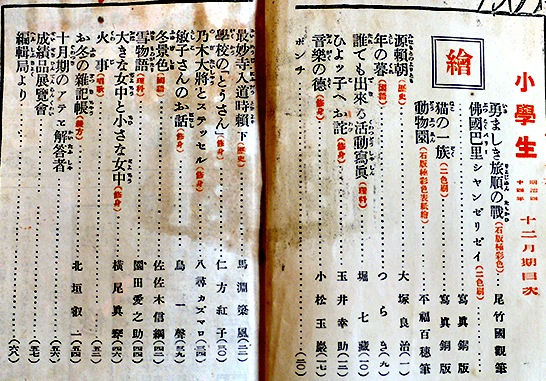 小學生
明治四十四年 十二月期目次
繪
勇ましき旅順の戰(石版極彩色) 尾竹國觀筆
佛國巴里シャンゼリゼイ(二色刷) 寫眞銅版
猫の一族(二色刷) 寫眞銅版
動物園(石版極彩色表紙繪) 不福百穗筆
源頼朝(歴史) 大塚良治(一)
年の暮(國語) つらき(九)
誰でも出來る活動寫眞(理科) 堀七藏(一〇)
ひよッ子へお詫(修身) 玉井幸助(一二)
音樂の德(修身) 小松玉巖(一七)
ポンチ (二〇)
最妙寺入道時頼 下(歴史) 馬淵築風(二二)
學校の「とうさん」(修身) 仁方紅子(三〇)
乃木大將とステッセル(修身) 八尋カズマロ(三四)
敏子さんのお話(修身) 鳥一聲(三九)
冬景色(國語) 佐佐木信綱(四二)
雪物語(理科) 園田愛之助(四四)
大きな女中と小さな女中(修身) 横尾眞琴(四六)
火事(唱歌) (五二)
お冬の雜記帳(綴方) 北垣叡二(五四)
十月期のアテエ解答者 (五五)
成績品展覽會 (五七)
編輯局より (六八)